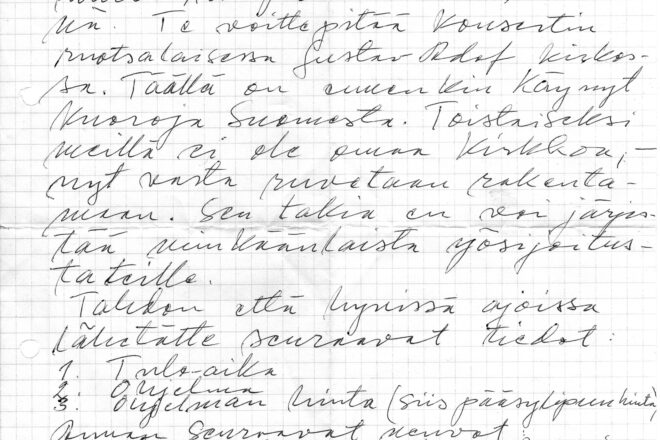 nä. Te voitte pitää Konsertin
ruotsalaisessa Gustav Adof kirkos-
sa. Täällä on ennenkin käynyt
Kuoroja Suomesta. Toistaiseksi
meillä ei ole omaa Kirkkoa, –
nyt vasta ruvetaan rakenta-
maan. Sen takia en voi järjes-
tää minkäänlaista yösijoitus-
ta teille.
Tahdon että hyvissä ajoissa
lähetätte seuraavat tiedot:
1. Tulo-aika
2. Ohjelma
3. Ohjelman hinta (siis pääsylipun hinta)
Annan seuraavat neuvot